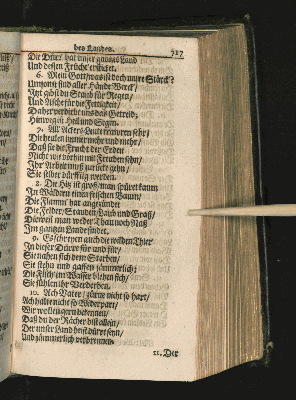 des Landes. 727
Die Dürre hat unser gantzes Land
Und dessen Früchte ersticket.
6. Mein Gott/ was ist doch unsre Stärck?
Umsonst sind aller Hände Werck/
Itzt gibst du Staub für Regen/
Und Asche für die Fettigkeit/
Daher verdirbt uns das Getreid/
Hinweg ist Heil und Segen.
7. All Ackers-Leute trauren sehr/
Die heulen immer mehr und mehr/
Daß sie die Frucht der Erden
Nicht wie vorhin mit Freuden sehn/
Ihr Arbeit muß zurücke gehn/
Sie selbst dürfftig werden.
8. Die Hitz ist groß/ man spüret kaum
In Wäldren einen frischen Baum/
Die Flamm' hat angezündet
Die Felder/ Stauden/ Laub und Graß/
Dieweil man weder Thau noch Naß
Im gantzen Lande findet.
9. Es schreyen auch die wilden Thier'
In dieser Dürre für und für/
Sie nahen sich dem Sterben/
Sie stehn und gaffen jämmerlich;
Die Fisch' im Wasser bleken sich/
Sie fühlen ihr Verderben.
10. Ach Vater/ zürne nicht so hart/
Ach halte nicht so Widerpart/
Wir wollen gern bekennen/
Daß du der Rächer bist allein/
Der unser Land heist dürre seyn/
Und jämmerlich verbrennen.
11. Der